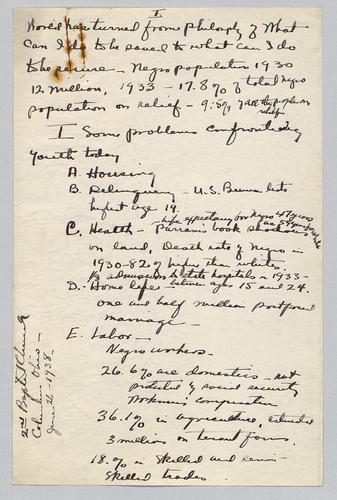 I
World has turned from philosophy of What
can I do to be saved to what can I do
to be secure - Negro population 1930
12 million, 1933 - 17.8% of total Negro
population on relief - 9.5% of all the people on
relief
I Some problems confronting
youth today
A. Housing
B. Delinquency - U.S. Bureau lists
highest age 19.
life expectancy for Negro 47 years
C. Health - Parran's book Shadows
on land, Death rate of Negro in
1930 - 82% higher than whites.
1/3 admissions to state hospitals in 1933 -
between ages 15 and 24.
D. Home life -
one and half million postponed
marriage -
E. Labor -
Negro workers -
26.6% are domestics - not
protected by social security
Workmens compensation
36.1% in agriculture, estimated
3 millions on tenant farms.
18.% in skilled and semi-
skilled trades
2nd Baptist Church
Columbus Ohio -
June 26 - 1938